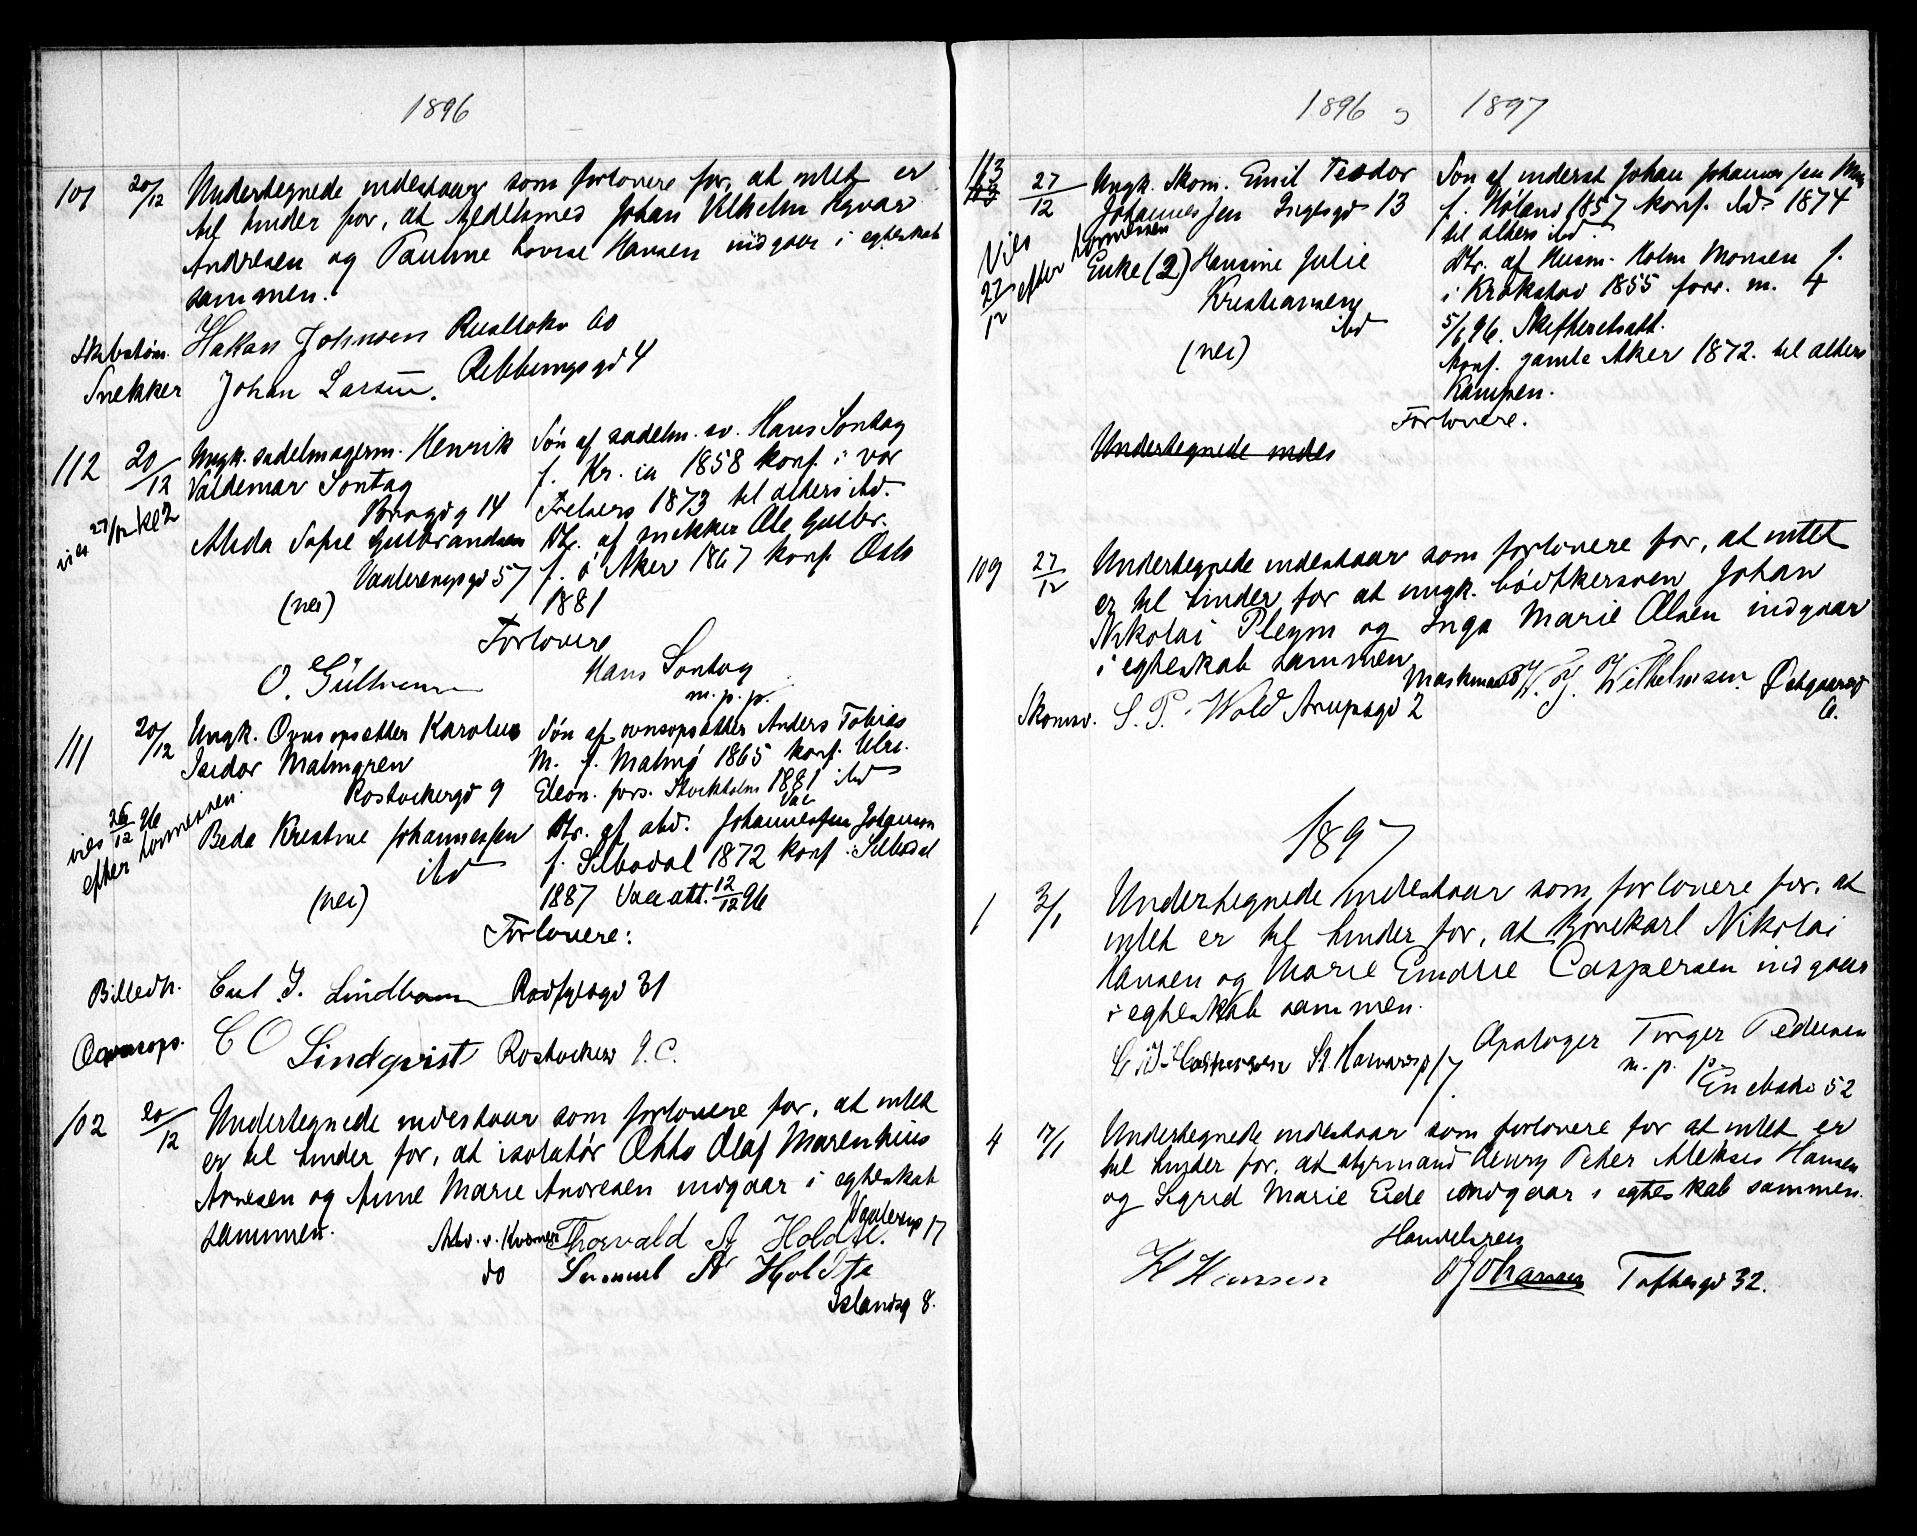 1896
101 20/12 Undertegnede indestaar som forlovere for, at intet er
til hinder for, at Gjedelsmed Johan Vilhelm Agvar
Andresen og Pauline Lovise Hansen indgaar i egteskab
sammen.
Skibstøm. Hakan Johnsen Ruseløkv 60
Snekker Johan Larsen. Rebbungsgd 4
112 20/12 Ungk. sadelmagerm. Henrik
Valdemar Sontag
Brogd g 14
vies 27/12 kl 2
Alida Sofie Gulbrandsen
Vaalerengsgd 57
(nei)
Søn af sadelm. sv. Hans Sontag
f. Kr. ia 1858 konf. i vor
Frelsers 1873 til alters ibd.
Dtr. af snekker Ole Gulbr.
f. i Aker 1867 konf. Oslo
1881
Forlovere
O. Gulbransen Hans Sontag
m. p. p.
111 20/12 Ungk. Ovnsopsetter Karolus
Isidor Malmgren
Rostockergd 9
vies 26/12 96
efter tomessen.
Beda Kristine Johannessen
ibd
(nei)
Søn af ovnsopsetter Anders Tobias
M. f. Malmø 1865 konf. Ulri.
Eleon. fors. Stockholm 1881 ibd
Vac
Dtr. af abd. Johannes Jen Johanson
f. Silbodal 1872 konf. i Silbodal
1887 Vac att. 12/12 96
Forlovere:
Billedh. Carl J. Lindbom Rodfydsgd 31
Ovnsops. C O Lindqvist Rostocker 9. C.
102 20/12 Undertegnede indestaar som forlovere for, at intet
er til hinder for, at isolatør Otto Olaf Marenhius
Arnesen og Anne Marie Andresen indgaar i egteskab
sammen.
Arb. v. Kværnen Thorvald A Holdte. Vaalereng 17
do Samuel A Hjoldte
Islandsg 8.

1896 og 1897
113 27/12 Ungk. Skom. Emil Teodor
Johannesjen Ingesgd 13
Vies 27/12 efter tomessen
Enke (2) Hansine Julie
Kristiansen
ibd
(nei)
Søn af inderst Johan Johannes sen
f. Høland 1857 konf. ibd. 1874
til alters ibd.
Dtr. af Husm. Holm Monsen f.
i Krokstad 1855 forr. m. †
5/6 96. Skifteretsatt.
Konf. gamle Aker 1872. til alters
Kampen.
Forlovere.
Undertegnede indes
109 27/12 Undertegnede indestaar som forlovere for, at intet
er til hinder for at ungk. bødtkersven Johan
Nikolai Pleym og Inga Marie Olsen indgaar
i egteskab sammen
Skomsv. S. P. Wold Arupsgd 2 Maskinmed H. J. Wilhelmsen. Østgaardsg
1897
1 3/1 Undertegnede indestaar som forlovere for, at
intet er til hinder for, at Kjørekarl Nikolai
Hansen og Marie Emilie Caspersen indgaar
i egteskab sammen.
Caspersen St. Halvardsg 17. Opsloger Torger Pedersen
m. p. p.
Enebakv 52
4 17/1 Undertegnede indestaar som forlovere for at intet er
til hinder for, at styrmand Henry Peter Aleksis Hansen
og Sigrid Marie Eide indgaar i egteskab sammen.
Handelsreis
H Hansen O Johansen Toftesgd 32.